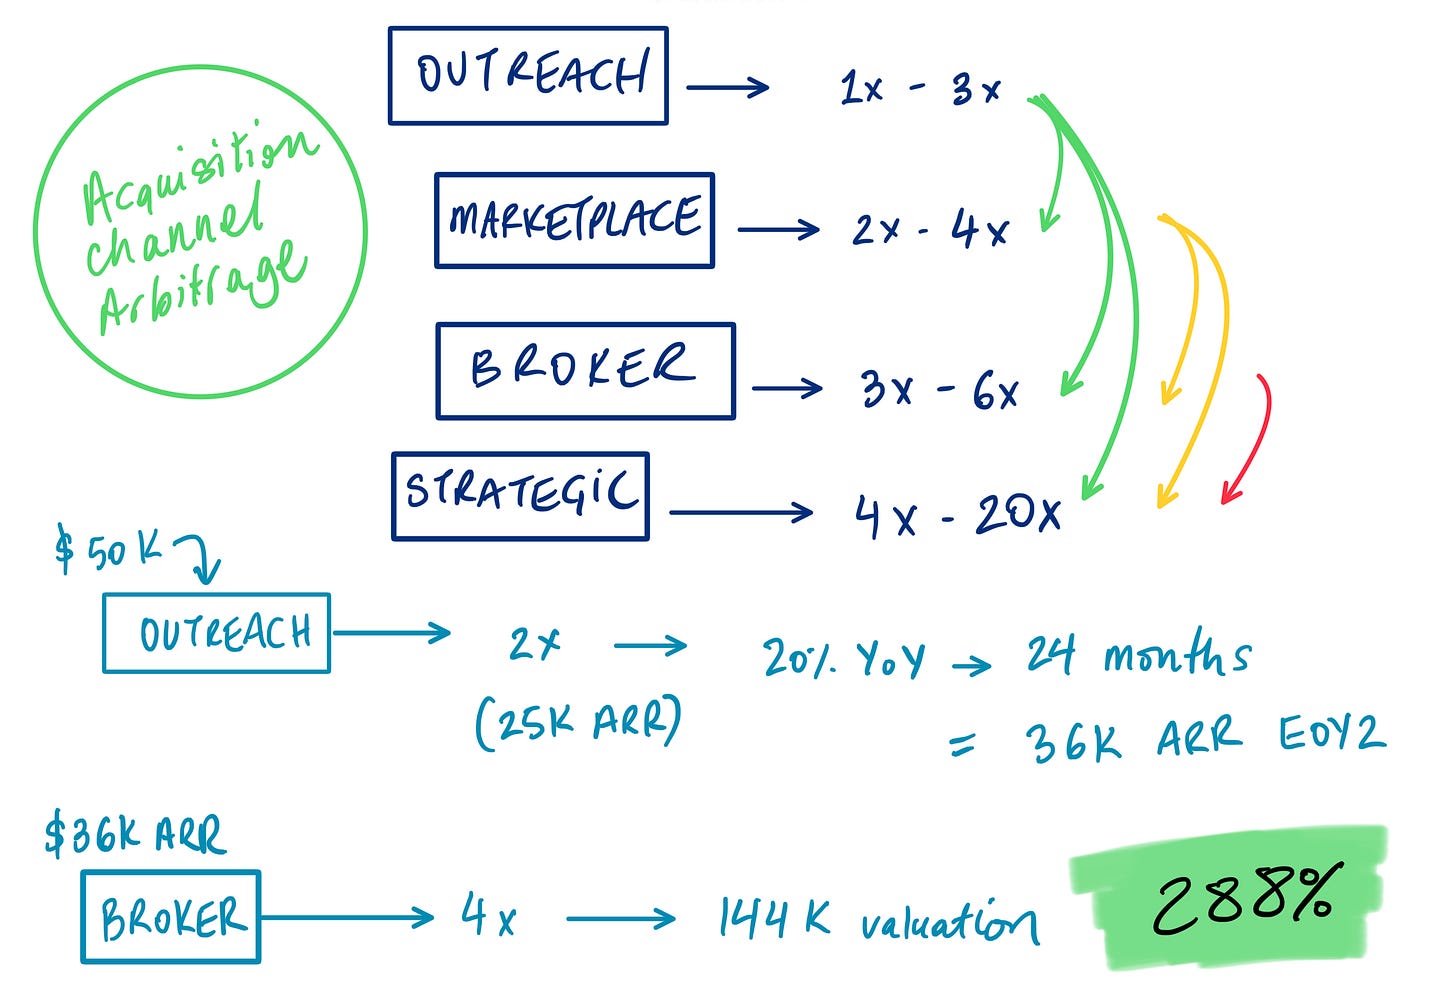 Acquisition
channel
Arbitrage
OUTREACH 1x - 3x
MARKETPLACE 2x - 4x
BROKER 3x - 6x
STRATEGIC 4x - 20x
$50K
OUTREACH 2x 20% YoY 24 months
(25K ARR) = 36K ARR EOY2
$36K ARR
BROKER 4x 144K valuation 288%